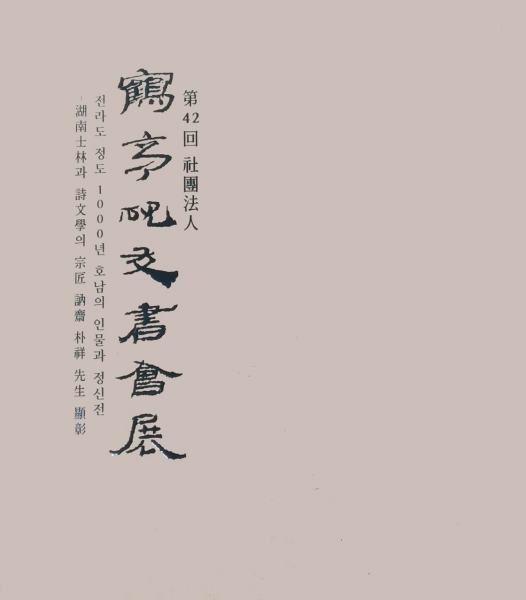 第42回 社團法人
鶴亭硯友書會展
전라도 정도 1000년 호남의 인물과 정신전
-湖南士林과 詩文學의 宗匠 訥齋 朴祥 先生 顯彰